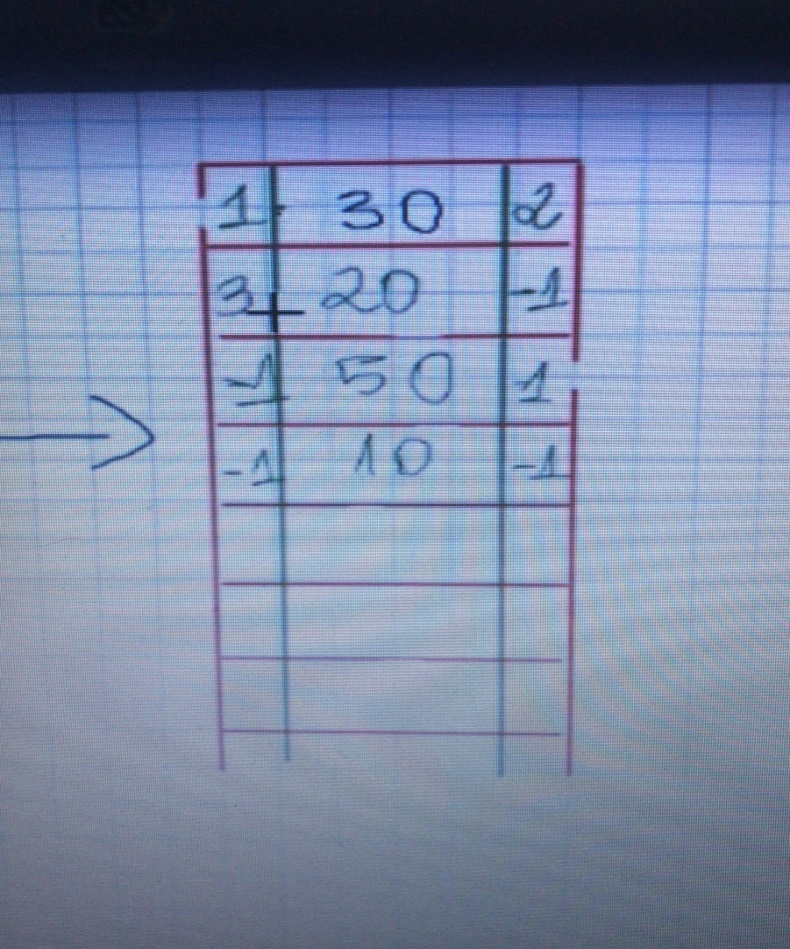 1 30 2
3 20 -1
-1 50 1
-1 10 -1